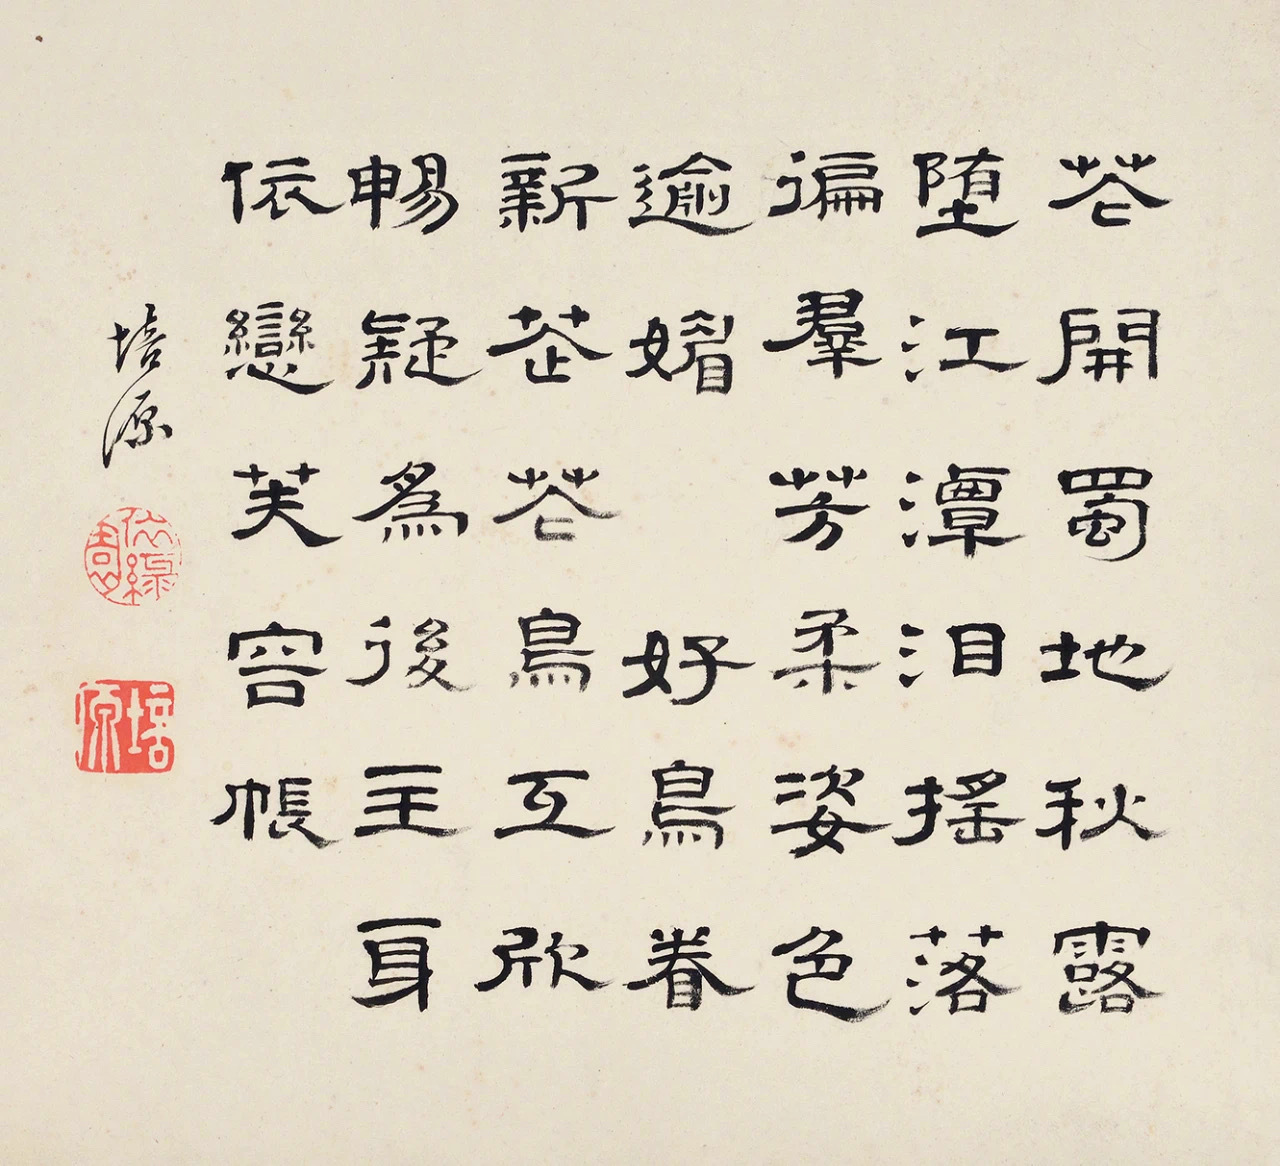 花開蜀地秋露
堕江潭泪搖落
徧羣芳柔姿色
逾媚 好鳥眷
新芷花鳥互欣
暢疑為後主身
依戀芙容帳
培源
培源